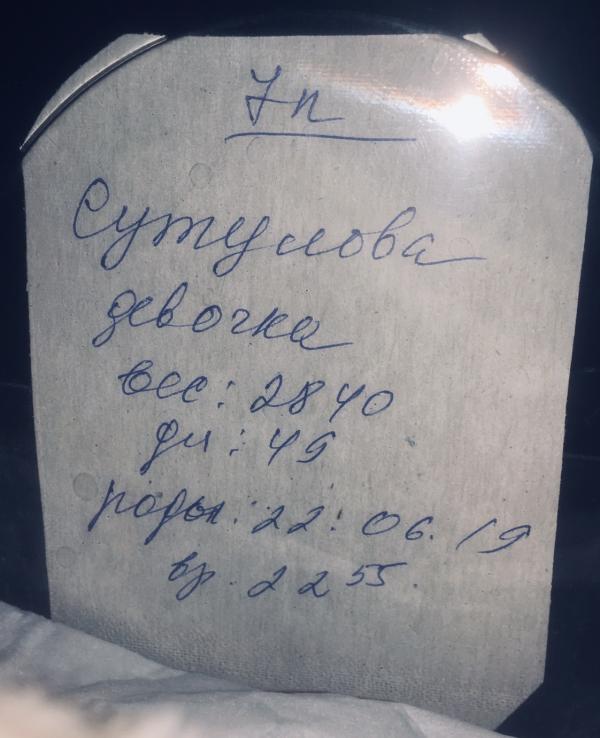 7п
Сутулова
девочка
вес: 2840
дл: 49
роды: 22. 06. 19
вр. 22 55.